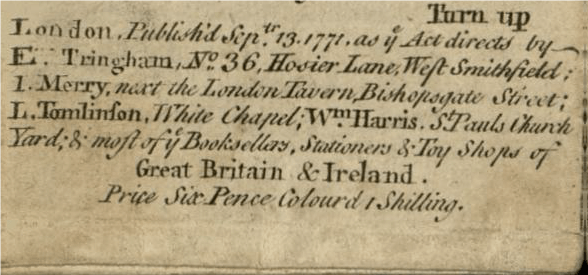 Turn up
London, Publish'd Septr. 13. 1771, as ye Act directs by
E: Tringham, No. 36, Hosier Lane, West Smithfield;
I. Merry, next the London Tavern, Bishopsgate Street;
L. Tomlinson, White Chapel; Wm. Harris, St. Pauls Church
Yard; & most of ye Booksellers, Stationers & Toy Shops of
Great Britain & Ireland.
Price Six Pence Colourd 1 Shilling.